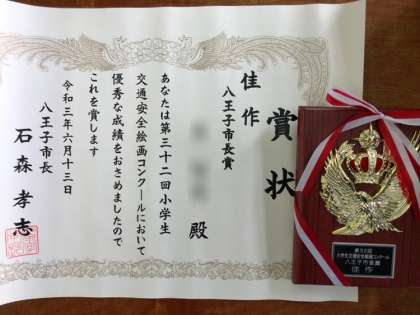 賞状
佳作
八王子市長賞
殿
あなたは第三十二回小学生
交通安全絵画コンクールにおいて
優秀な成績をおさめましたので
これを賞します
令和三年六月十三日
八王子市長
石森孝志
第32回
小学生交通安全絵画コンクール
八王子市長賞
佳作